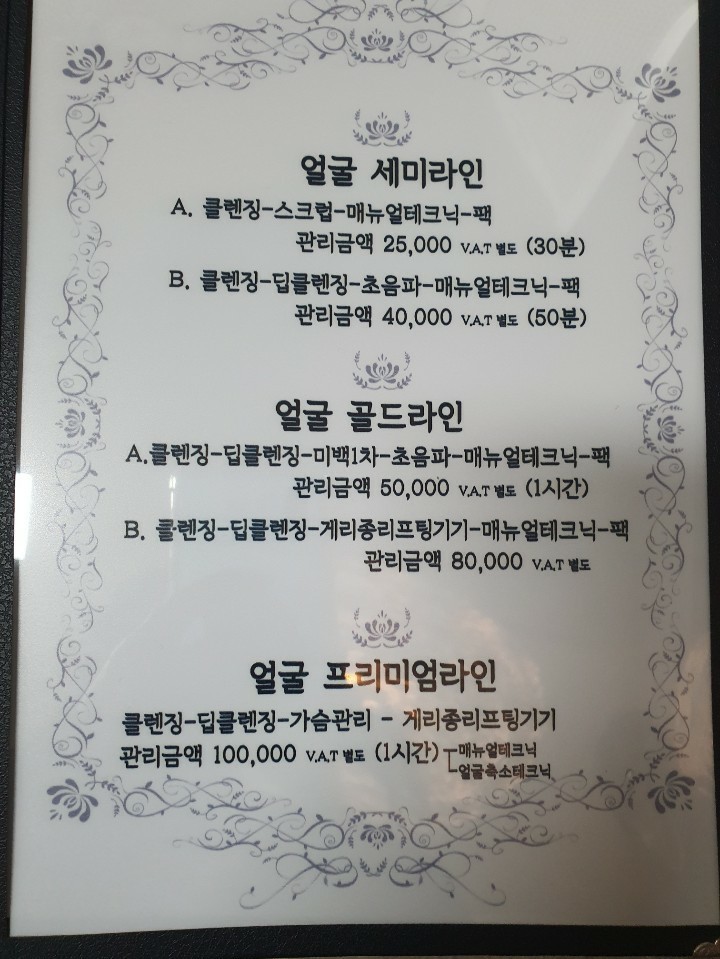 얼굴 세미라인
A. 클렌징-스크럽-매뉴얼테크닉-팩
관리금액 25,000 V.A.T 별도 (30분)
B. 클렌징-딥클렌징-초음파-매뉴얼테크닉-팩
관리금액 40,000 V.A.T 별도 (50분)
얼굴 골드라인
A.클렌징-딥클렌징-미백1차-초음파-매뉴얼테크닉-팩
관리금액 50,000 V.A.T 별도 (1시간)
B. 클렌징-딥클렌징-게리종리프팅기기-매뉴얼테크닉-팩
관리금액 80,000 V.A.T 별도
얼굴 프리미엄라인
클렌징-딥클렌징-가슴관리 - 게리종리프팅기기
관리금액 100,000 V.A.T 별도 (1시간) 매뉴얼테크닉
얼굴축소테크닉